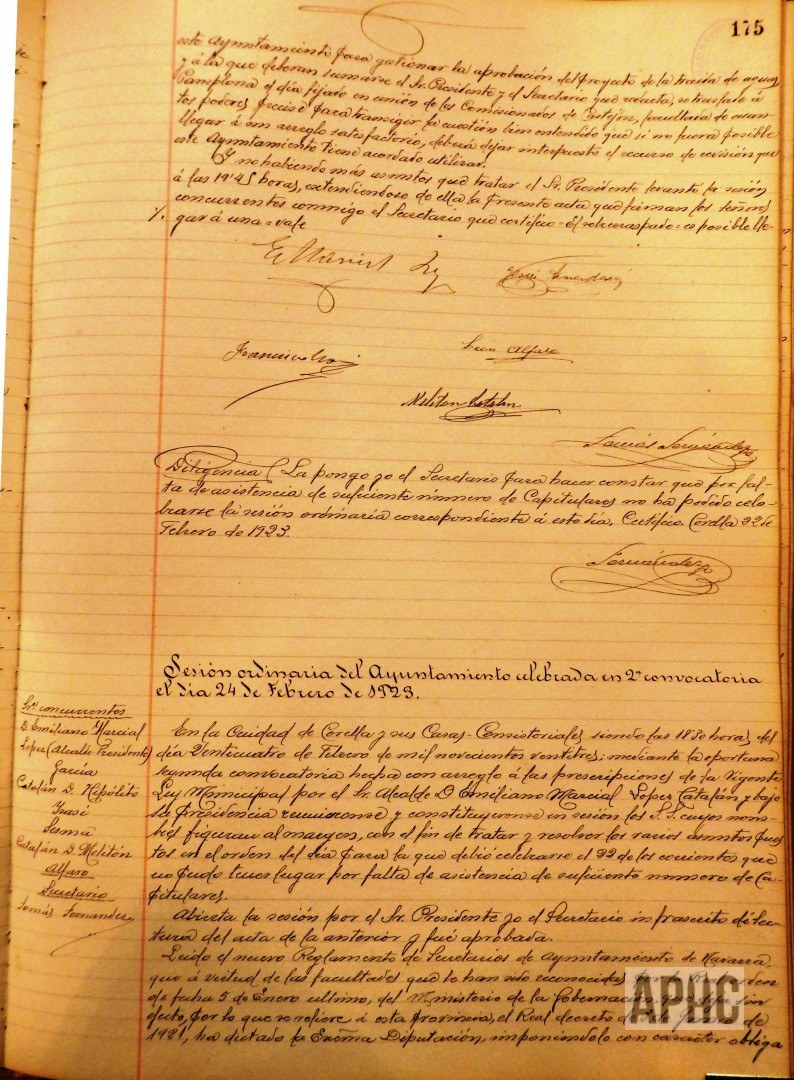 175
este Ayuntamiento para gestionar la aprobación del proyecto de la traida de aguas
y á la que deberán sumarse el Sr. Presidente y el Secretario que redacta, se traslade á
Pamplona el día fijado en unión de los Comisionados de Castejón, facultada de cuan-
tos poderes precise para transigir la cuestión bien entendido que si no fuera posible
llegar á un arreglo satisfactorio, deberá dejar interpuesto el recurso de revisión que
este Ayuntamiento tiene acordado utilizar.
Y no habiendo más asuntos que tratar el Sr. Presidente levantó la sesión
á las 19'45 horas, extendiendose de ella la presente acta que firman los señores
concurrentes conmigo el Secretario que certifico = El sobreraspado = es posible lle-
gar á una = vale
León Alfaro
Meliton Catalán
Tomás Fernández
Diligencia ( La pongo yo el Secretario para hacer constar que por fal-
ta de asistencia de suficiente número de Capitulares no ha podido cele-
brarse la sesión ordinaria correspondiente á este día. Certifico. Corella 22 de
Febrero de 1923.
Fernández
Sesión ordinaria del Ayuntamiento celebrada en 2ª convocatoria
el día 24 de Febrero de 1923.
Srs. concurrentes
D. Emiliano Marcial
López (Alcalde Presidente)
García
Catalán D. Hipólito
Sanz
Catalán D. Melitón
Alfaro
Secretario
Tomás Fernández
En la Ciudad de Corella y sus Casas-Consistoriales, siendo las 18'30 horas, del
día Venticuatro de Febrero de mil novecientos ventitres; mediante la oportuna
segunda convocatoria hecha con arreglo á las prescripciones de la Vigente
Ley Municipal por el Sr. Alcalde D. Emiliano Marcial López Catalán y bajo
su Presidencia reunieronse y constituyeronse en sesión los S.S. cuyos nom-
bres figuran al margen, con el fin de tratar y resolver los varios asuntos pues-
tos en el orden del día para la que debió celebrarse el 22 de los corrientes que
no pudo tener lugar por falta de asistencia de suficiente número de Ca-
pitulares.
Abierta la sesión por el Sr. Presidente yo el Secretario infrascrito dí lec-
tura del acta de la anterior y fué aprobada.
Leído el nuevo Reglamento de Secretarios de Ayuntamiento de Navarra
que á virtud de las facultades que le han sido reconocidas
de fecha 5 de Enero último, del Ministerio de la Gobernación, que deja sin
efecto, por lo que se refiere á esta provincia, el Real decreto de
1921, ha dictado la Excma Diputación, imponiéndolo con carácter obliga
APHC